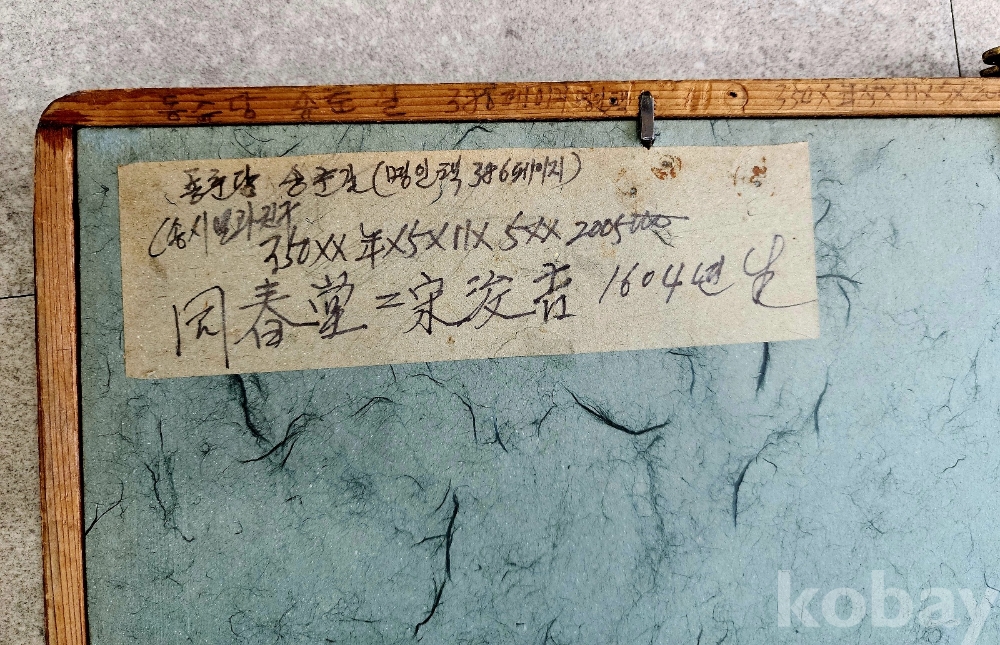 동춘당 송준길 386페이지 350X
동춘당 송준길 (명인책 386페이지)
(송시열과친구
350XX 年X5X11X 5XX 2005
同春堂=宋浚吉 1604년생
kobay